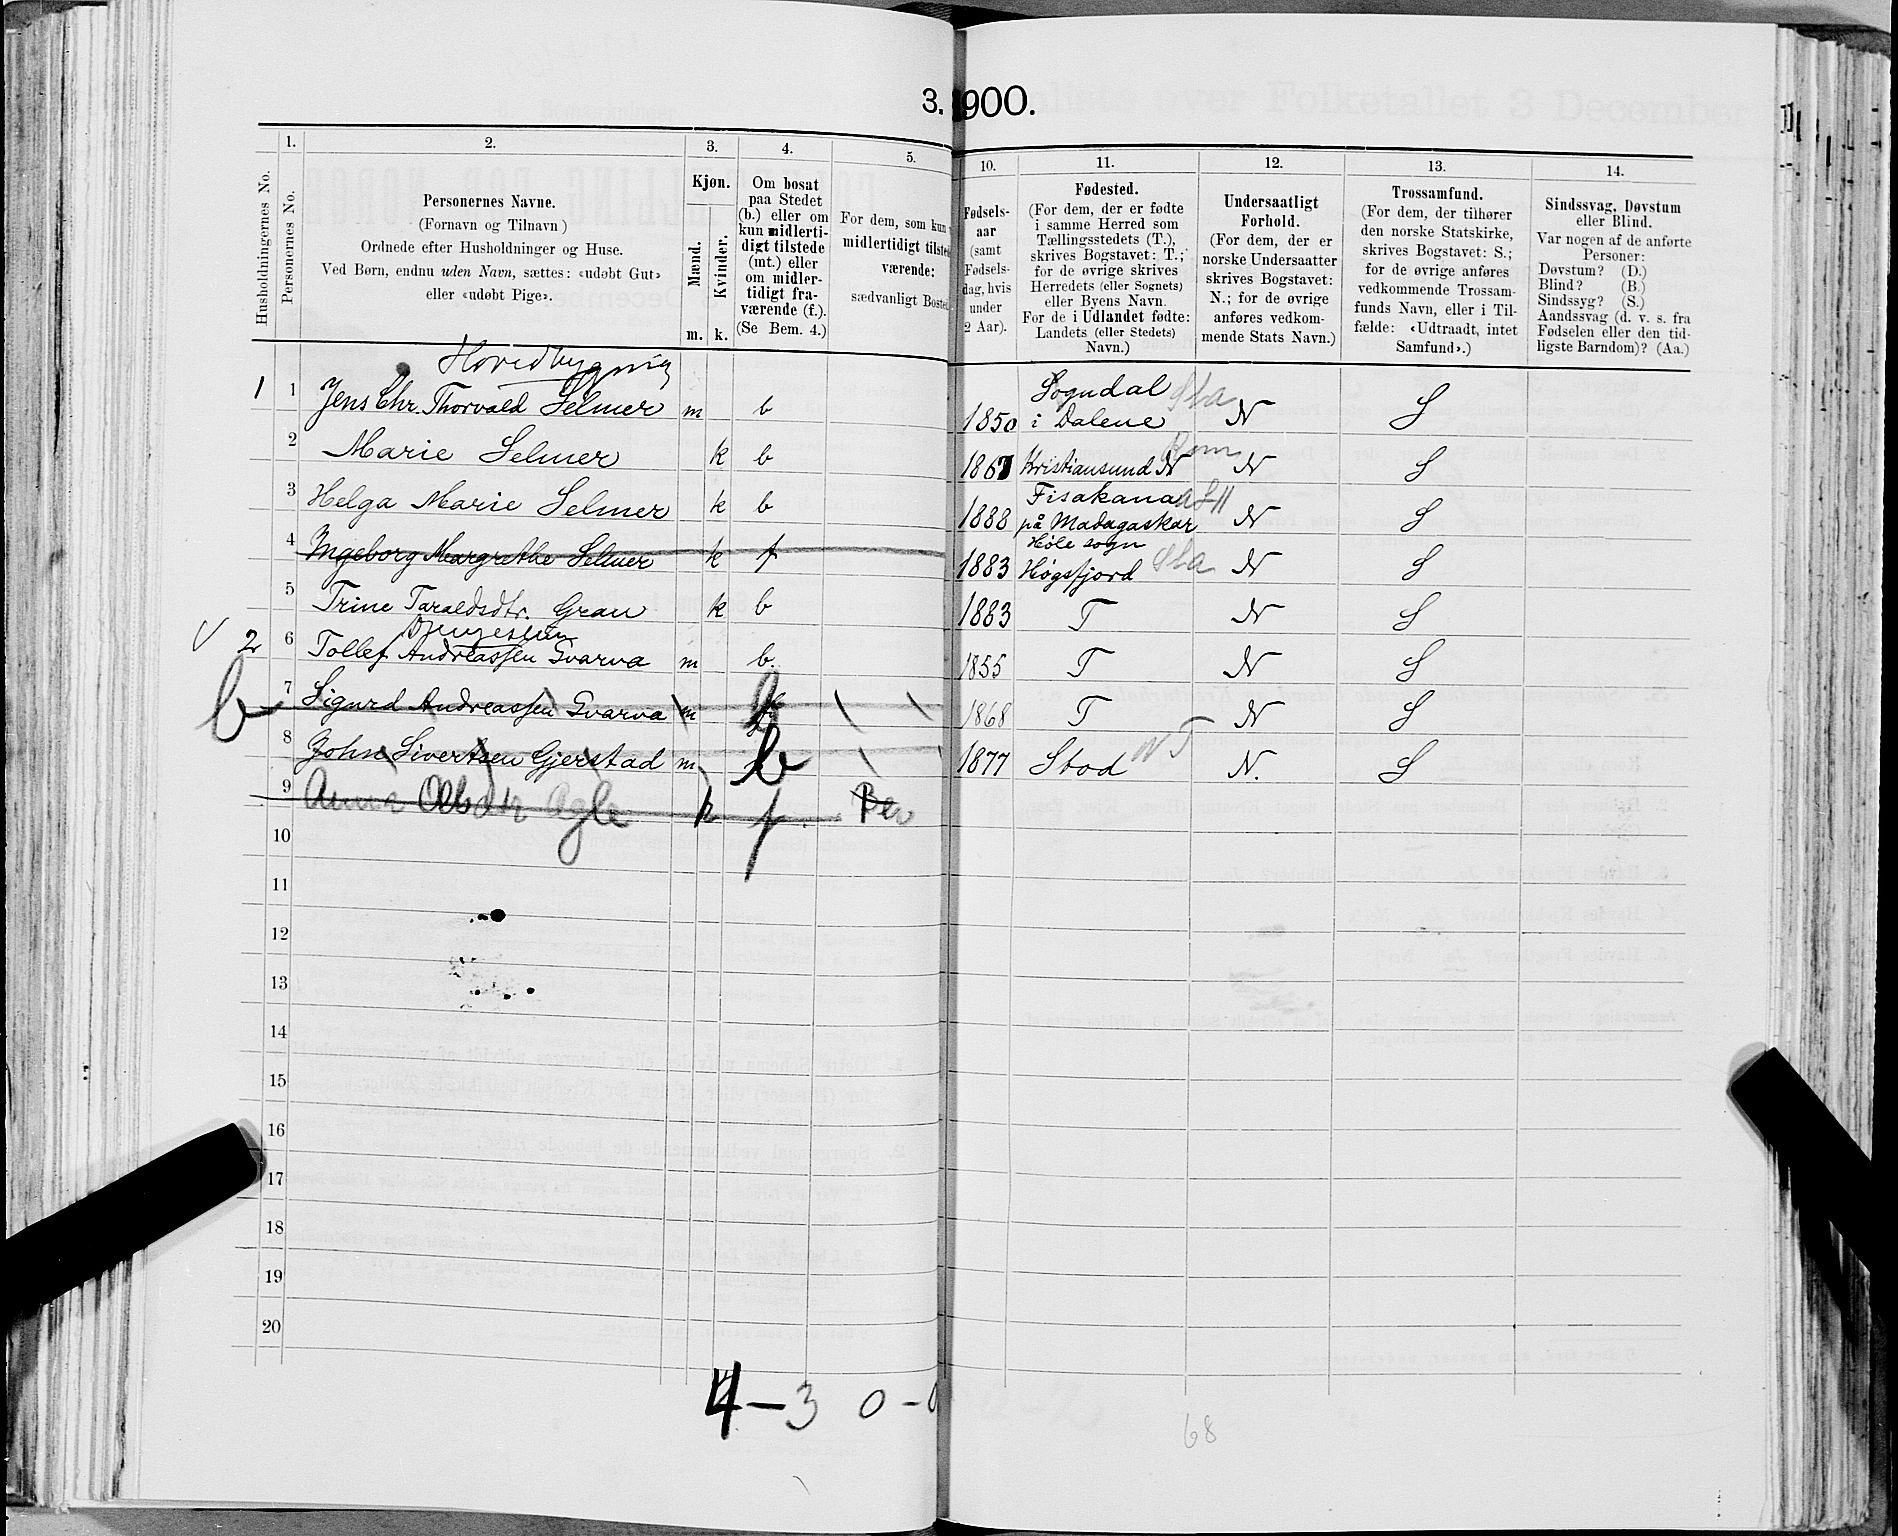 3. 1900.
1.
2.
3.
4.
5.
10.
11.
12.
13.
14.
Husholdningernes No.
Personernes No.
Personernes Navne.
(Fornavn og Tilnavn)
Ordnede efter Husholdninger og Huse.
Ved Børn, endnu uden Navn, sættes: «udøbt Gut»
eller «udøbt Pige».
Kjøn.
Mænd.
Kvinder.
m. k.
Om bosat
paa Stedet
(b.) eller om
kun midlerti-
digt tilstede
(mt.) eller
om midler-
tidigt fra-
værende (f.).
(Se Bem. 4.)
For dem, som kun
midlertidigt tilste
værende:
sædvanligt Boste
Fødsels-
aar
(samt
Fødsels-
dag, hvis
under
2 Aar).
Fødested.
(For dem, der er fødte
i samme Herred som
Tællingsstedets (T.),
skrives Bogstavet: T.;
for de øvrige skrives
Herredets (eller Sognets)
eller Byens Navn.
For de i Udlandet fødte:
Landets (eller Stedets)
Navn.)
Undersaatligt
Forhold.
(For dem, der er
norske Undersaatter
skrives Bogstavet:
N.; for de øvrige
anføres vedkom-
mende Stats Navn.)
Trossamfund.
(For dem, der tilhører
den norske Statskirke,
skrives Bogstavet: S.;
for de øvrige anføres
vedkommende Trossam-
funds Navn, eller i Til-
fælde: «Udtraadt, intet
Samfund».)
Sindssvag, Døvstum
eller Blind.
Var nogen af de anførte
Personer:
Døvstum? (D.)
Blind? (B.)
Sindssyg? (S.)
Aandssvag (d. v. s. fra
Fødselen eller den tid-
ligste Barndom)? (Aa.)
Hovedbygning
1 1 Jens Chr. Thorvald Selmer m b 1850 Sogndal i Dalene Sta N S
2 Marie Selmer k b 1867 Kristiansund N Rom N S
3 Helga Marie Selmer k b 1888 Fisakana på Madagaskar N S
4 Ingeborg Margrethe Selmer k f 1883 Høle sogn Høgsfjord Sta N S
5 Trine Taraldsdtr. Grau k b 1883 T N S
2 6 Tollef Andreassen Svarva m b. 1855 T N S
b 7 Sigurd Andreassen Svarva m 1868 T N S
8 John Sivertsen Gjerstad m b 1877 Stod NT N. S
9 Anna Olsdtr Agle k f.
10
11
12
13
14
15
16
17
18
19
20
4 – 3 0 – 0
68